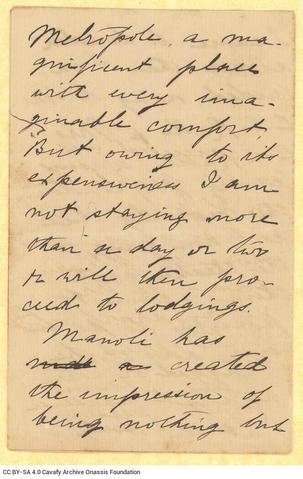 Metropole, a ma-
gnificent place
with every ima-
ginable comfort.
But owing to its
expensiveness I am
not staying more
than a day or two
& will then pro-
ceed to lodgings.
Manoli has
created
the impression of
being nothing but
CC BY-SA 4.0 Cavafy Archive Onassis Foundation